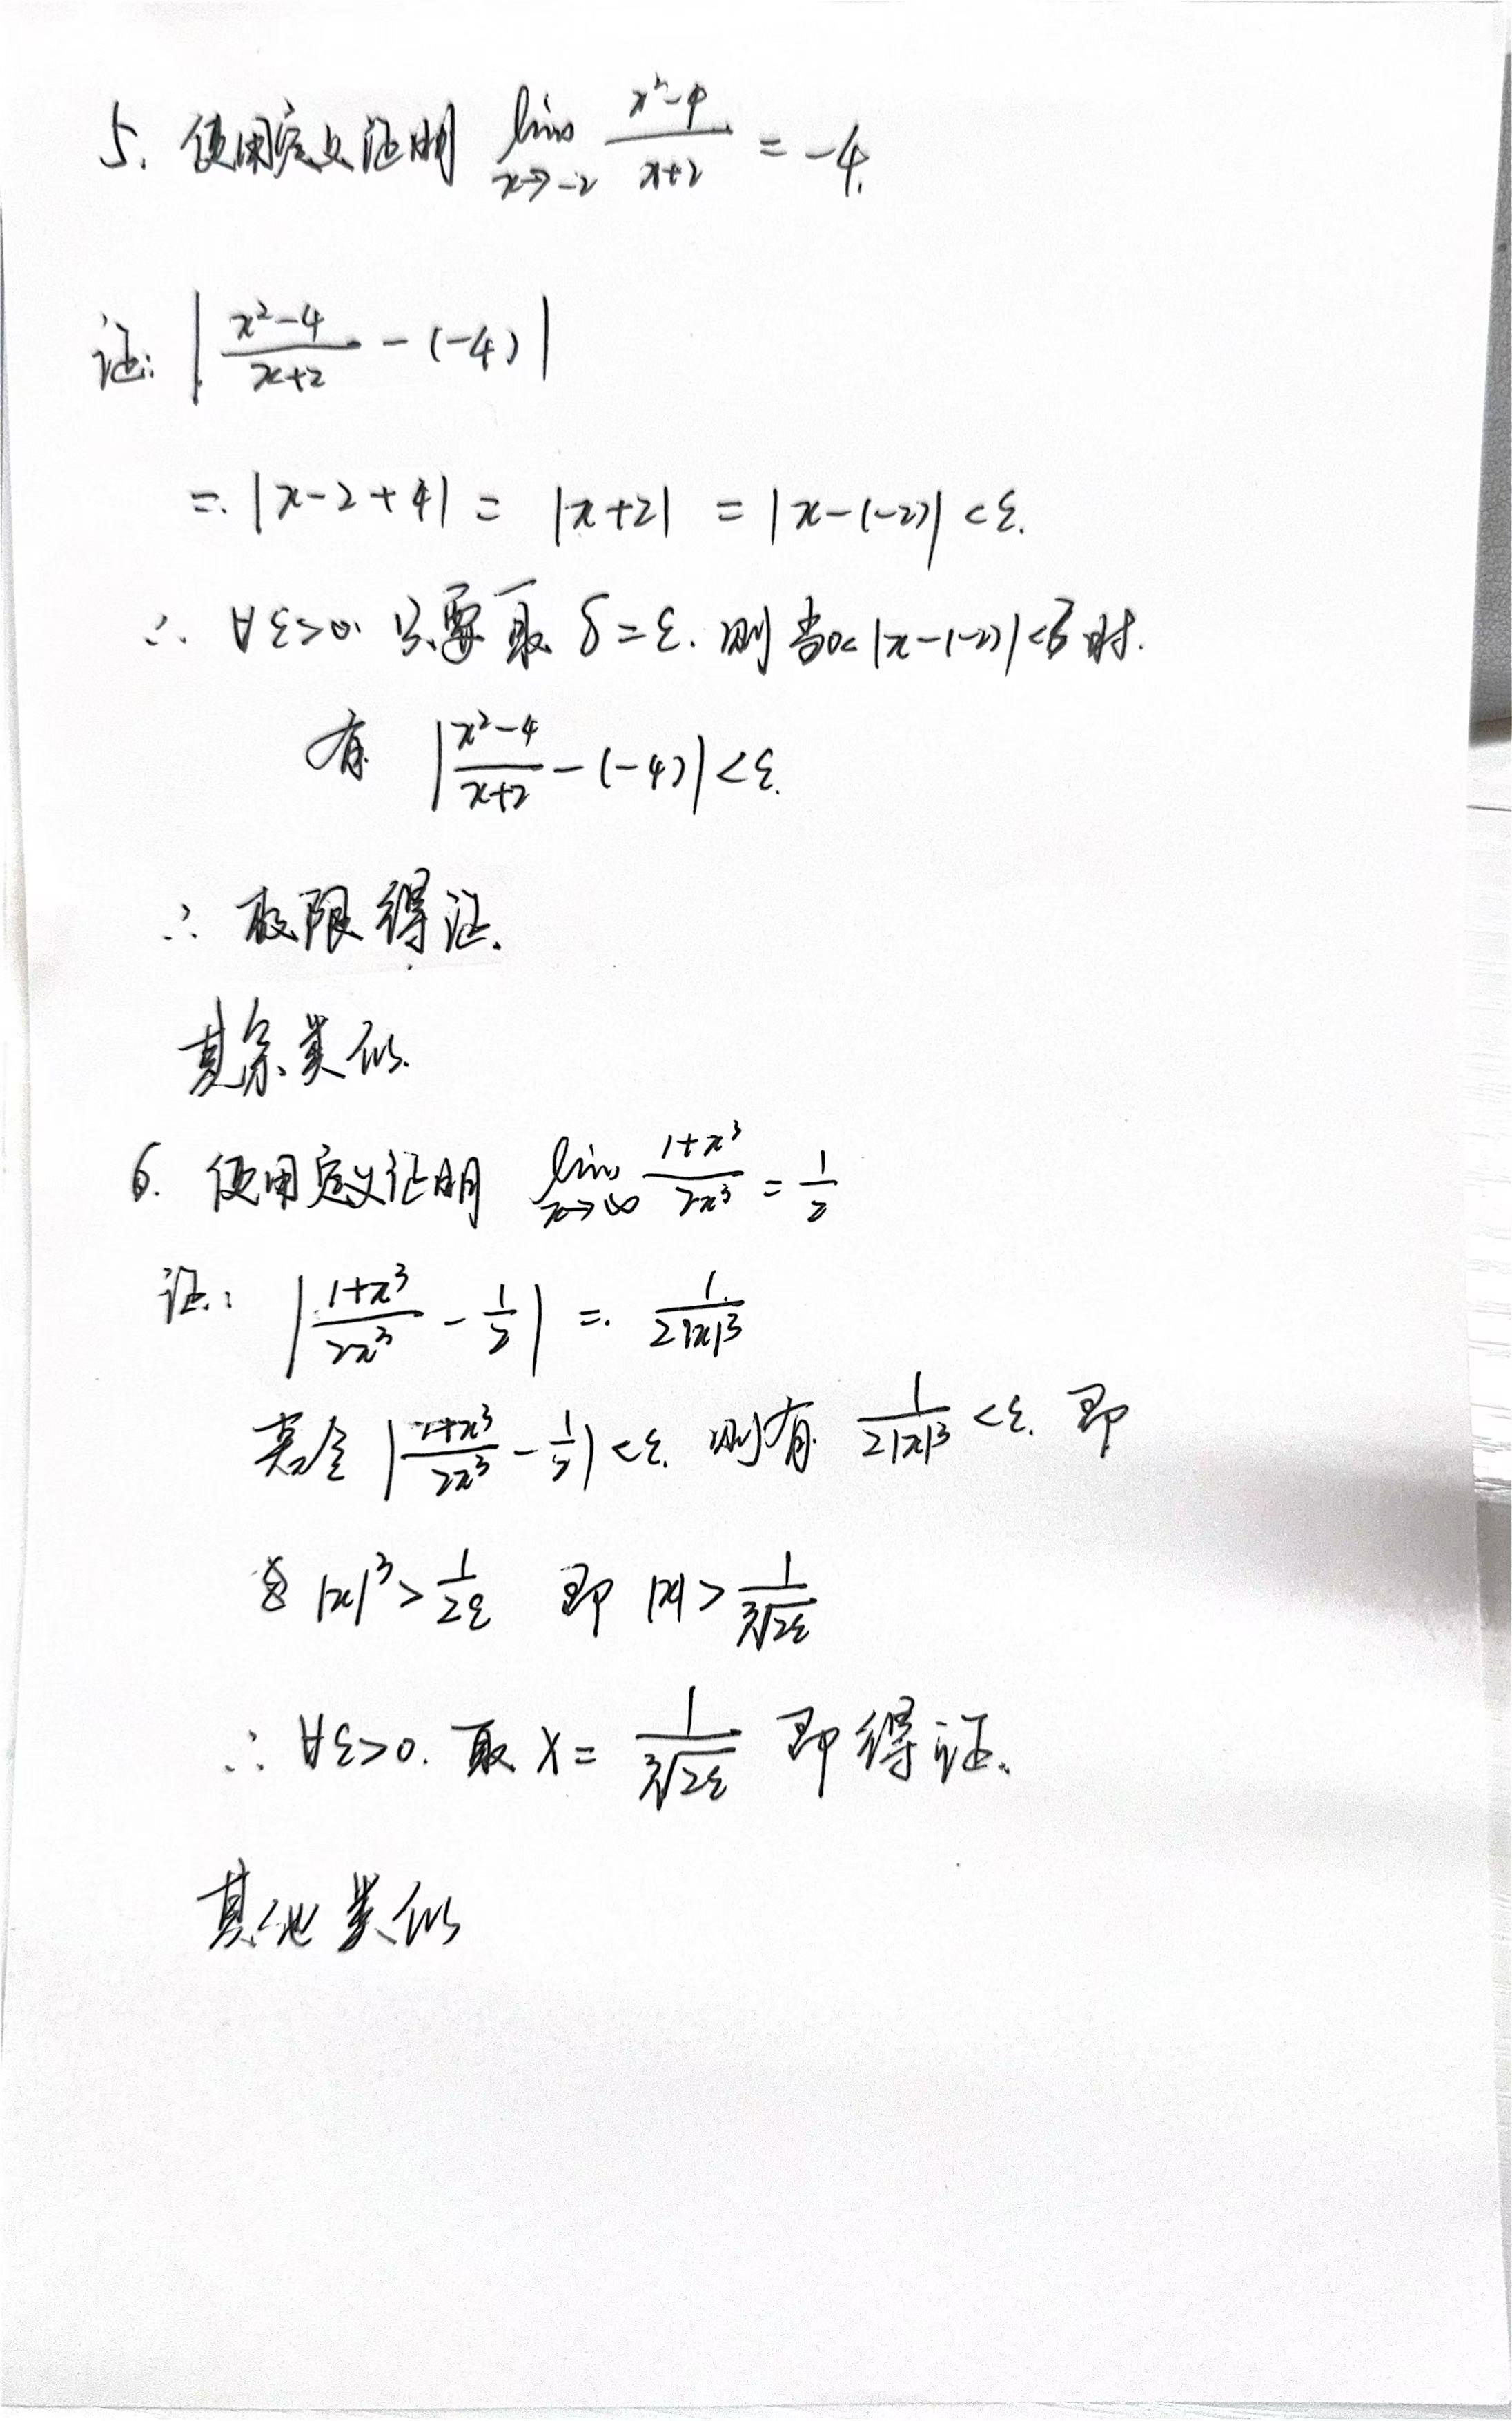 5. 使用定义证明 lim x→-2 (x²-4)/(x+2) = -4.
证: |(x²-4)/(x+2) - (-4)|
= |x-2+4| = |x+2| = |x-(-2)| < ε.
∴ ∀ε>0. 只要取 δ=ε. 则当0<|x-(-2)|<δ时.
有 |(x²-4)/(x+2) - (-4)| < ε.
∴ 极限得证.
其余类似.
6. 使用定义证明 lim x→∞ (1+x³)/(2x³) = 1/2
证: |(1+x³)/(2x³) - 1/2| = 1/(2|x|³)
令 |(1+x³)/(2x³) - 1/2| < ε. 则有 1/(2|x|³) < ε. 即
|x|³ > 1/(2ε) 即 |x| > 1/∛(2ε)
∴ ∀ε>0. 取 X = 1/∛(2ε) 即得证.
其他类似